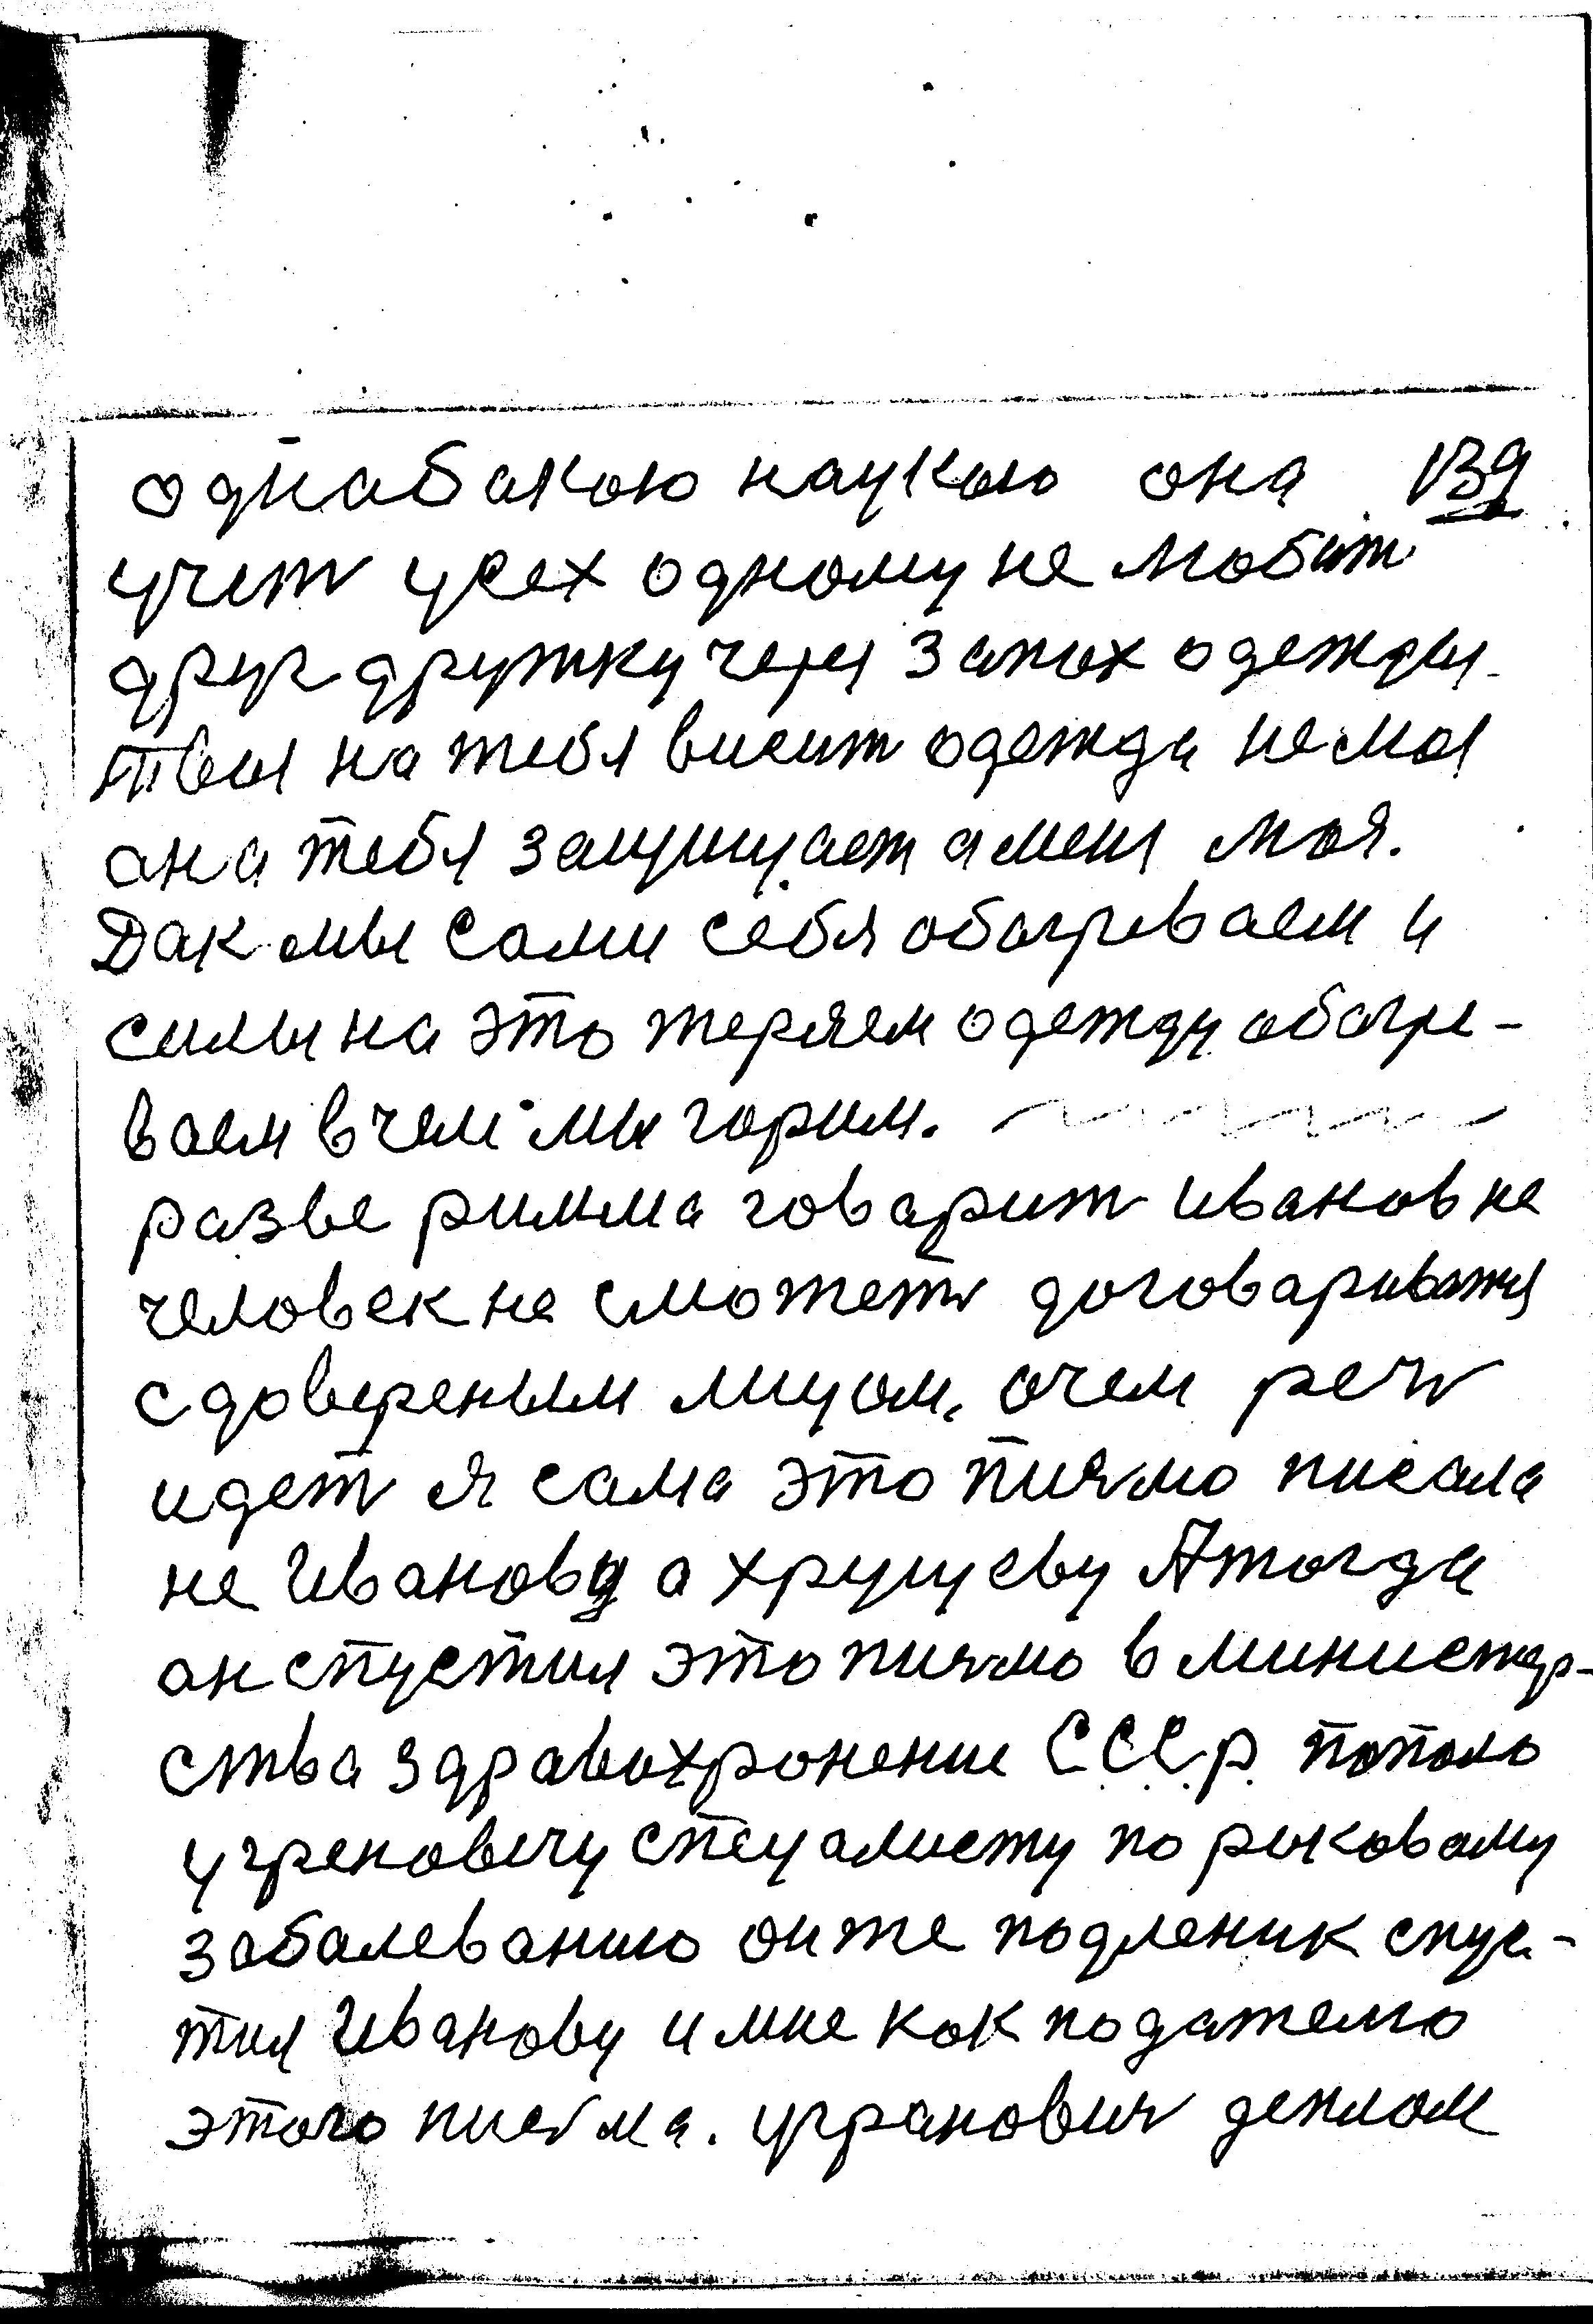 однабакою наукою она 139
учит усех одному не любит
друг дружку через запах одежды.
твоя на тебя висит одежда не моя
она тебя защищает а меня моя.
Дак мы сами себя обогреваем и
силы на это теряем одежду обогре-
ваем в чем мы горим.
разве римма говарит иванов не
человек не сможеть договариватя
с довереным лицом. очем речь
идеть я сама это письмо писала
не Иванову а хрущеву А тогда
он спустил это письмо в министер-
ства здравохронение СССР пополо
угреновичу спецалисту по раковаму
забалеванию он же подленик спус-
тил Иванову и мне как подателю
этого письма. угранович деплом